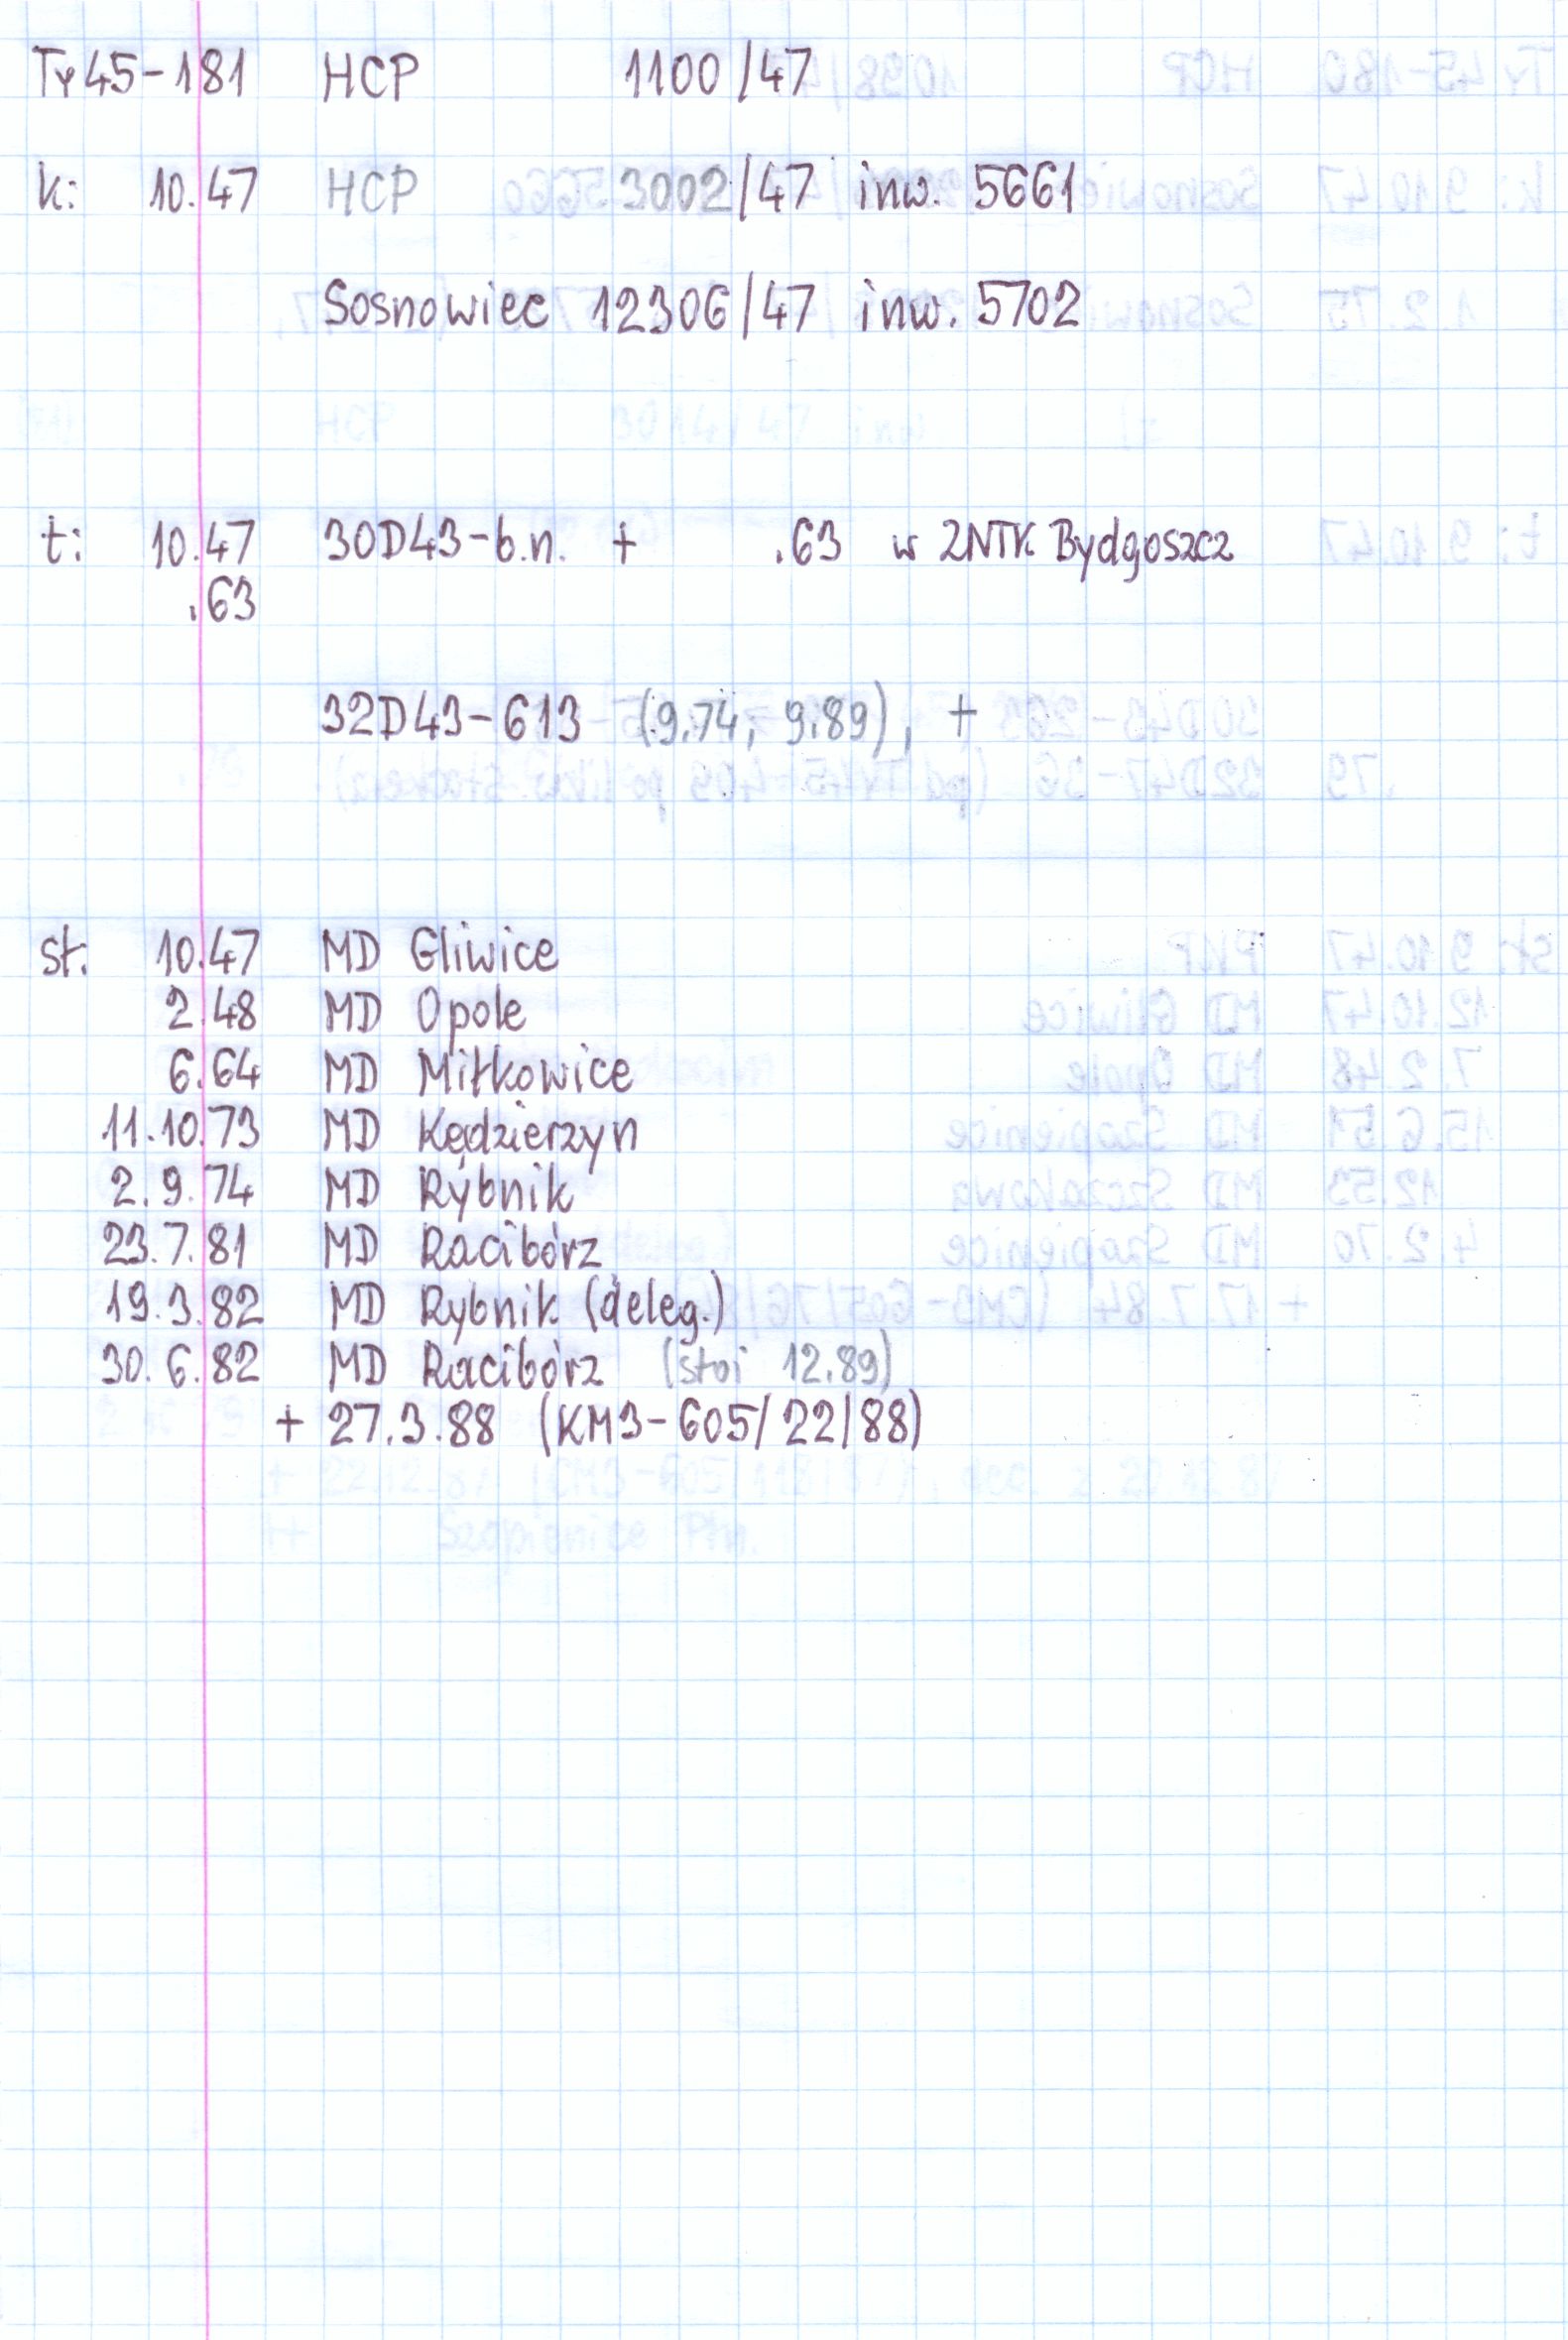 Ty45-181 HCP 1100/47
k: 10.47 HCP 3002/47 inw. 5661
Sosnowiec 12306/47 inw. 5702
t: 10.47 30D43-b.n. + .63 w ZNTK Bydgoszcz
.63
32D43-613 (9.74, 9.89), +
st: 10.47 MD Gliwice
2.48 MD Opole
6.64 MD Miłkowice
11.10.73 MD Kędzierzyn
2.9.74 MD Rybnik
23.7.81 MD Racibórz
19.3.82 MD Rybnik (deleg.)
30.6.82 MD Racibórz (stoi 12.89)
+ 27.3.88 (KM3-605/22/88)